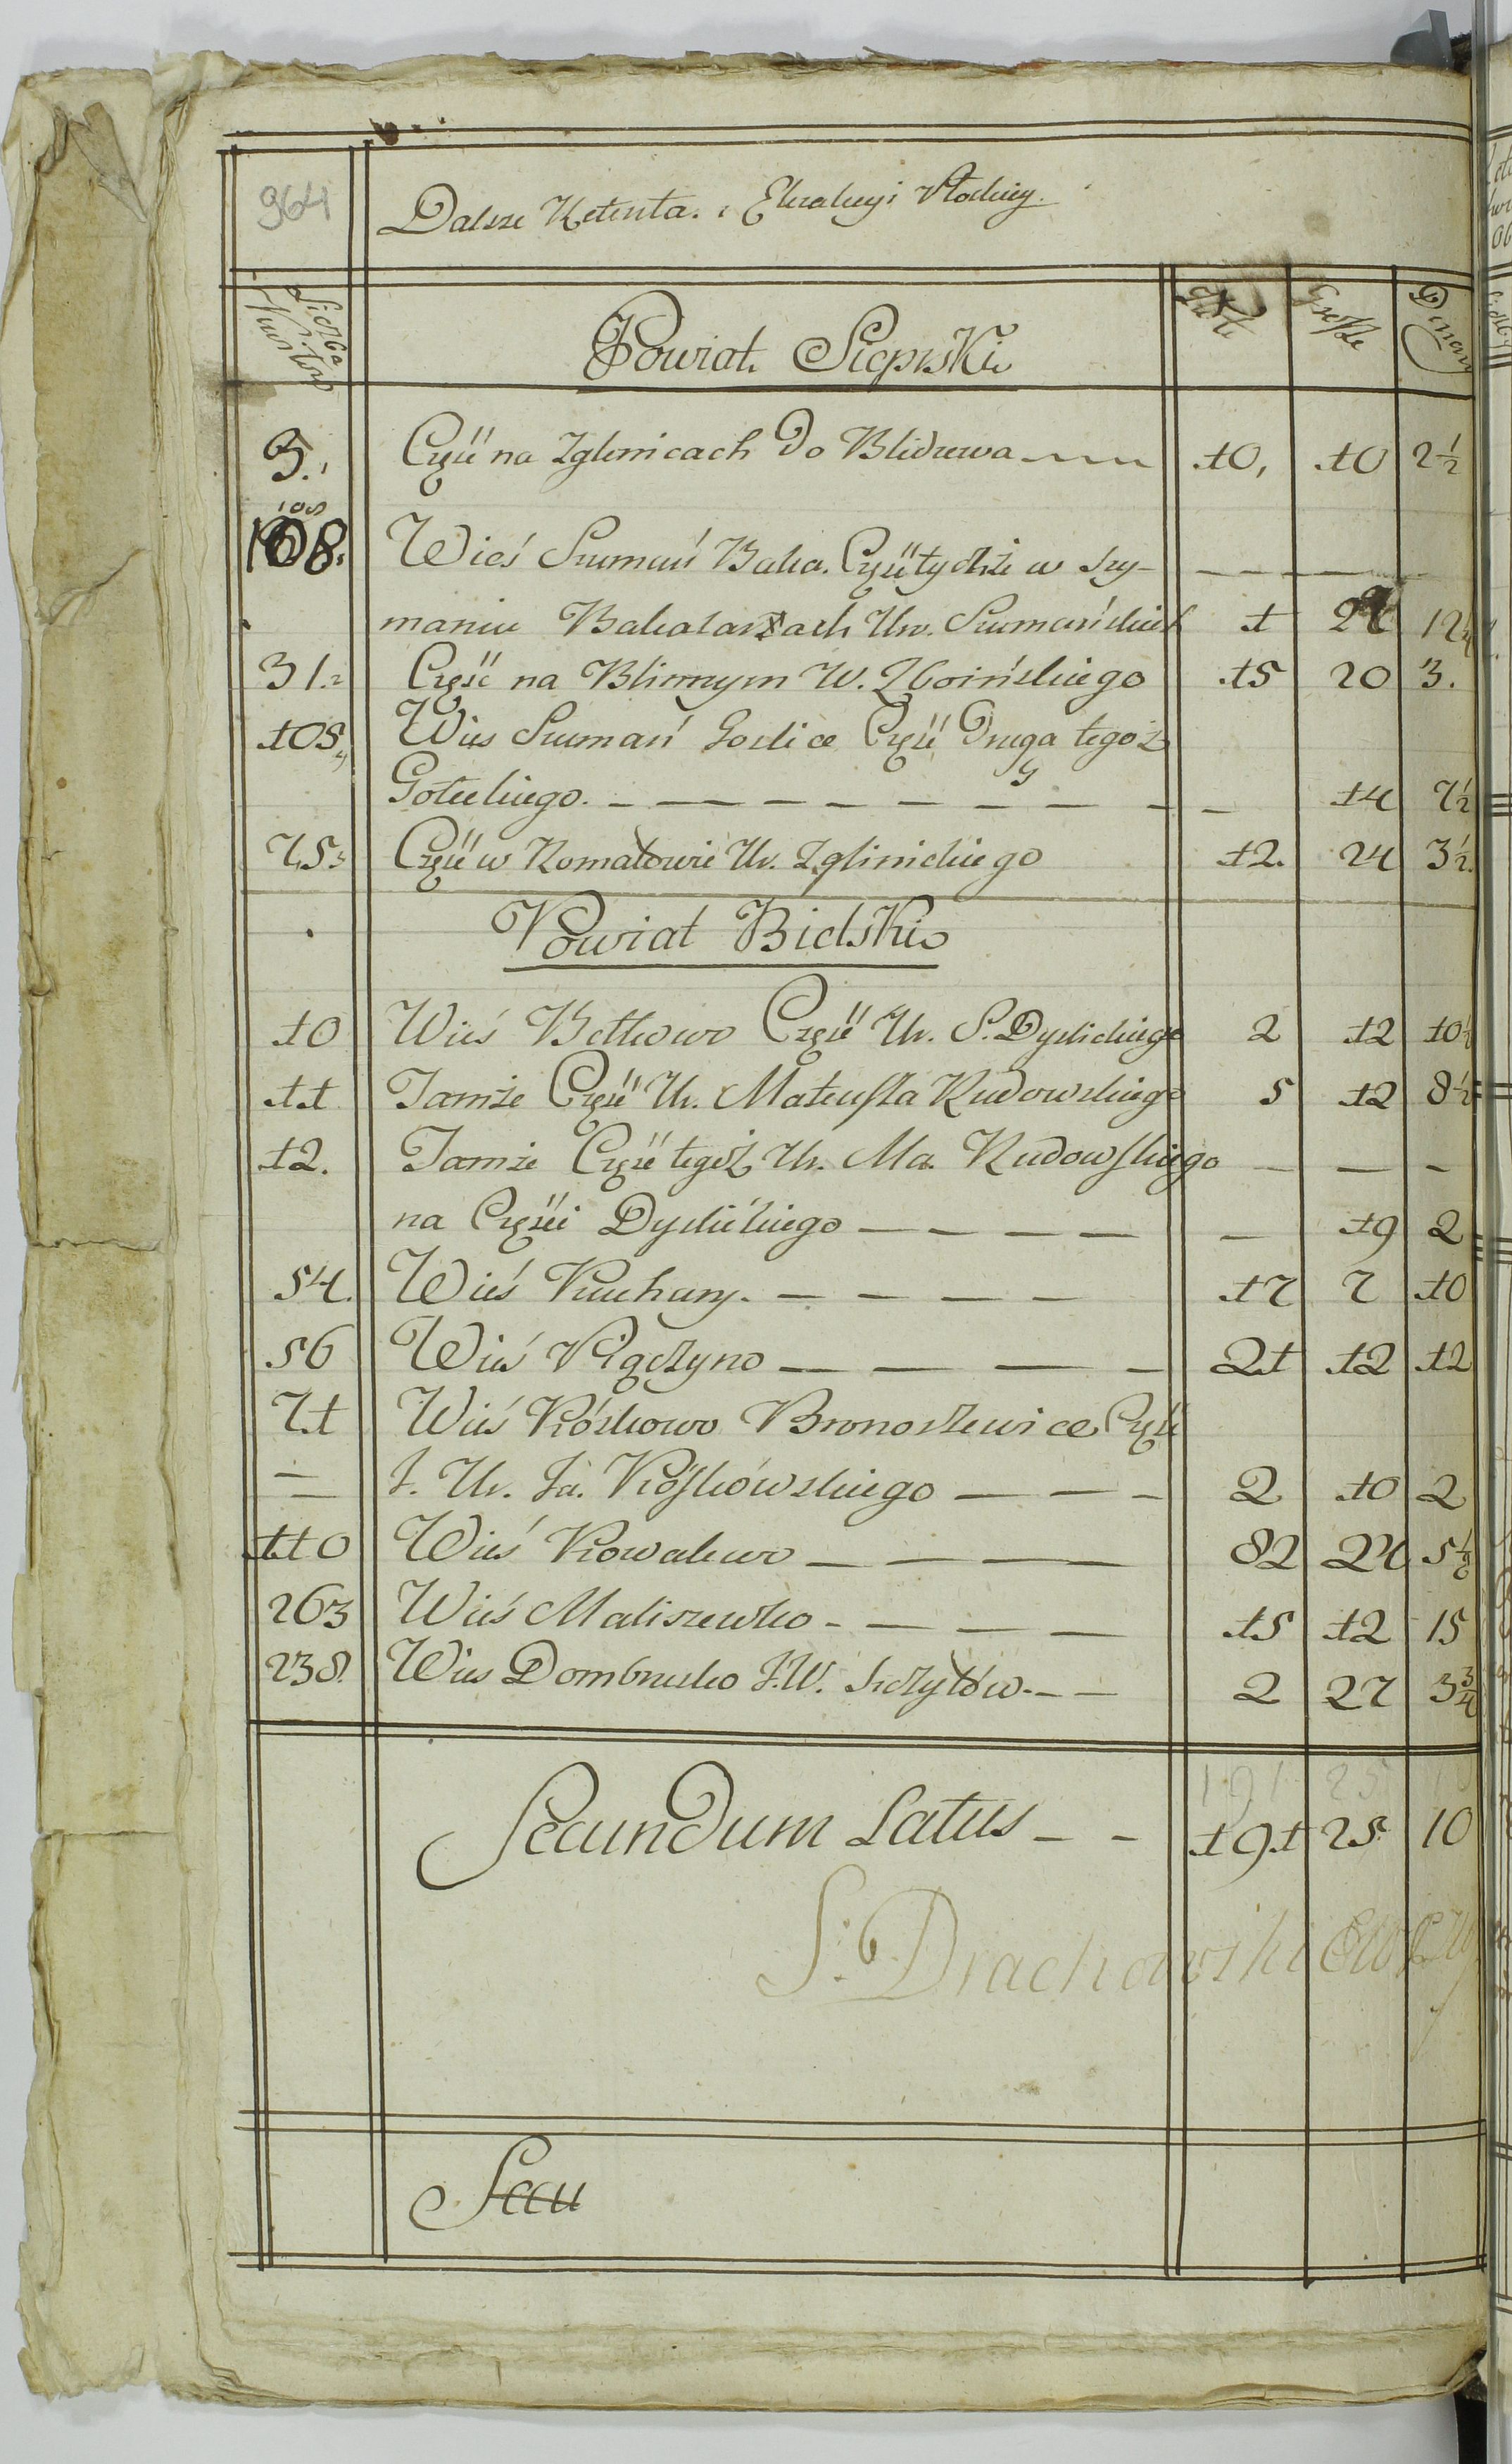 964 Dalsze Retenta. z Ekzakcyi Płockiey.
Liczba Nurtow Powiat Sieprski Złote Grosze Denar
3. Część na Zglenicach Do Blidzewa 10, 10 2 1/2
108
108. Wieś Szumań Baka. Część tychże w Szy-
maniu Bakalarzach Ur. Szumańskich 1 24 12
31. Część na Blinnym W. Zboińskiego 15 20 3.
105 Wies Szumań Gorlice Część Druga tegoż
Goleckiego. 14 7 1/2
75 Część w Romatowie Ur. Zglinickiego 12. 24 3 1/2.
Powiat Bielski
10 Wieś Betkowo Część Ur. S. Dyslickiego 2 12 10 1/2
11 Tamże Część Ur. Mateusza Rudowskiego 5 12 8 1/2
12. Tamże Część tegoż Ur. Ma. Rudowskiego
na Części Dyslickiego 19 2
54. Wieś Kuchary. 17 7 10
56 Wieś Kłączyno 21 12 12
71 Wieś Kóskowo Bronoszewice Część
J. Ur. Ja. Kóskówskiego 2 10 2
110 Wieś Kowalewo 82 24 5 1/2
263 Wieś Maliszewko 15 12 15
238. Wies Dombrusko J.W. Szczytów. 2 27 3 3/4
191 25
Secundum Latus 191 25 10
S: Drachowski
Secu